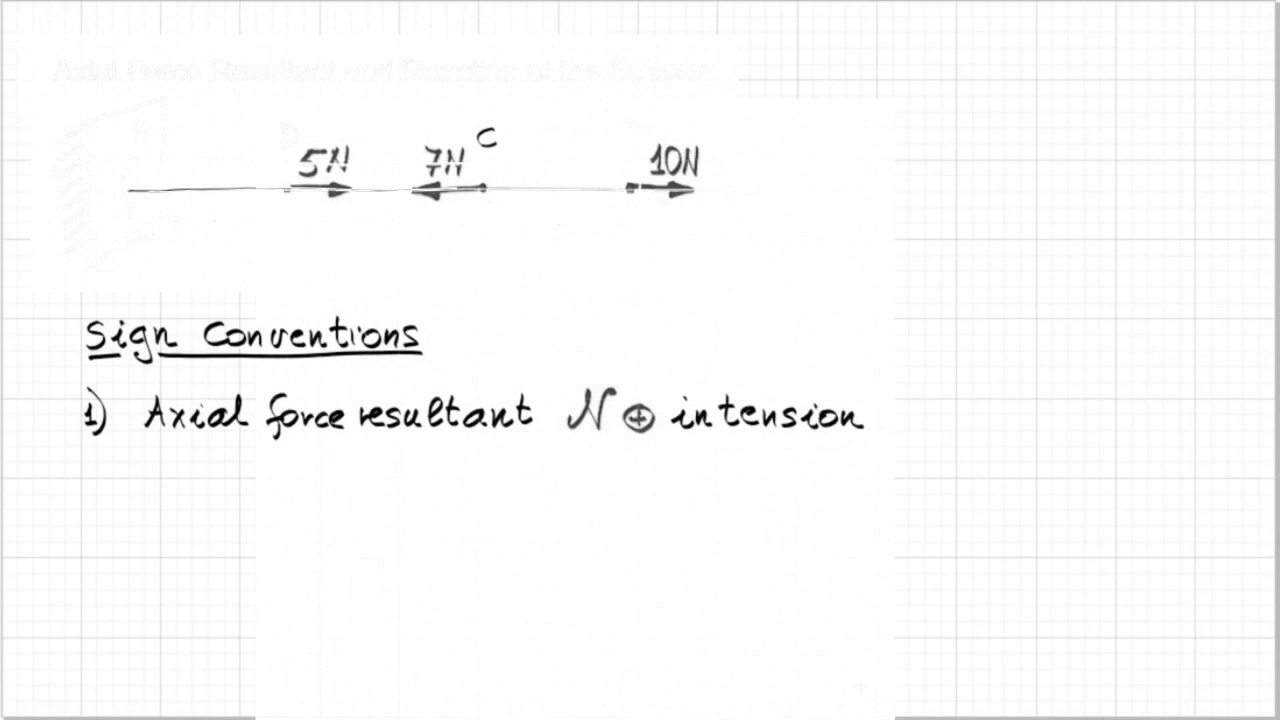 Axial Force Resultant and Reaction at the Support
C
5N 7N 10N
Sign Conventions
1) Axial force resultant N ⊕ in tension